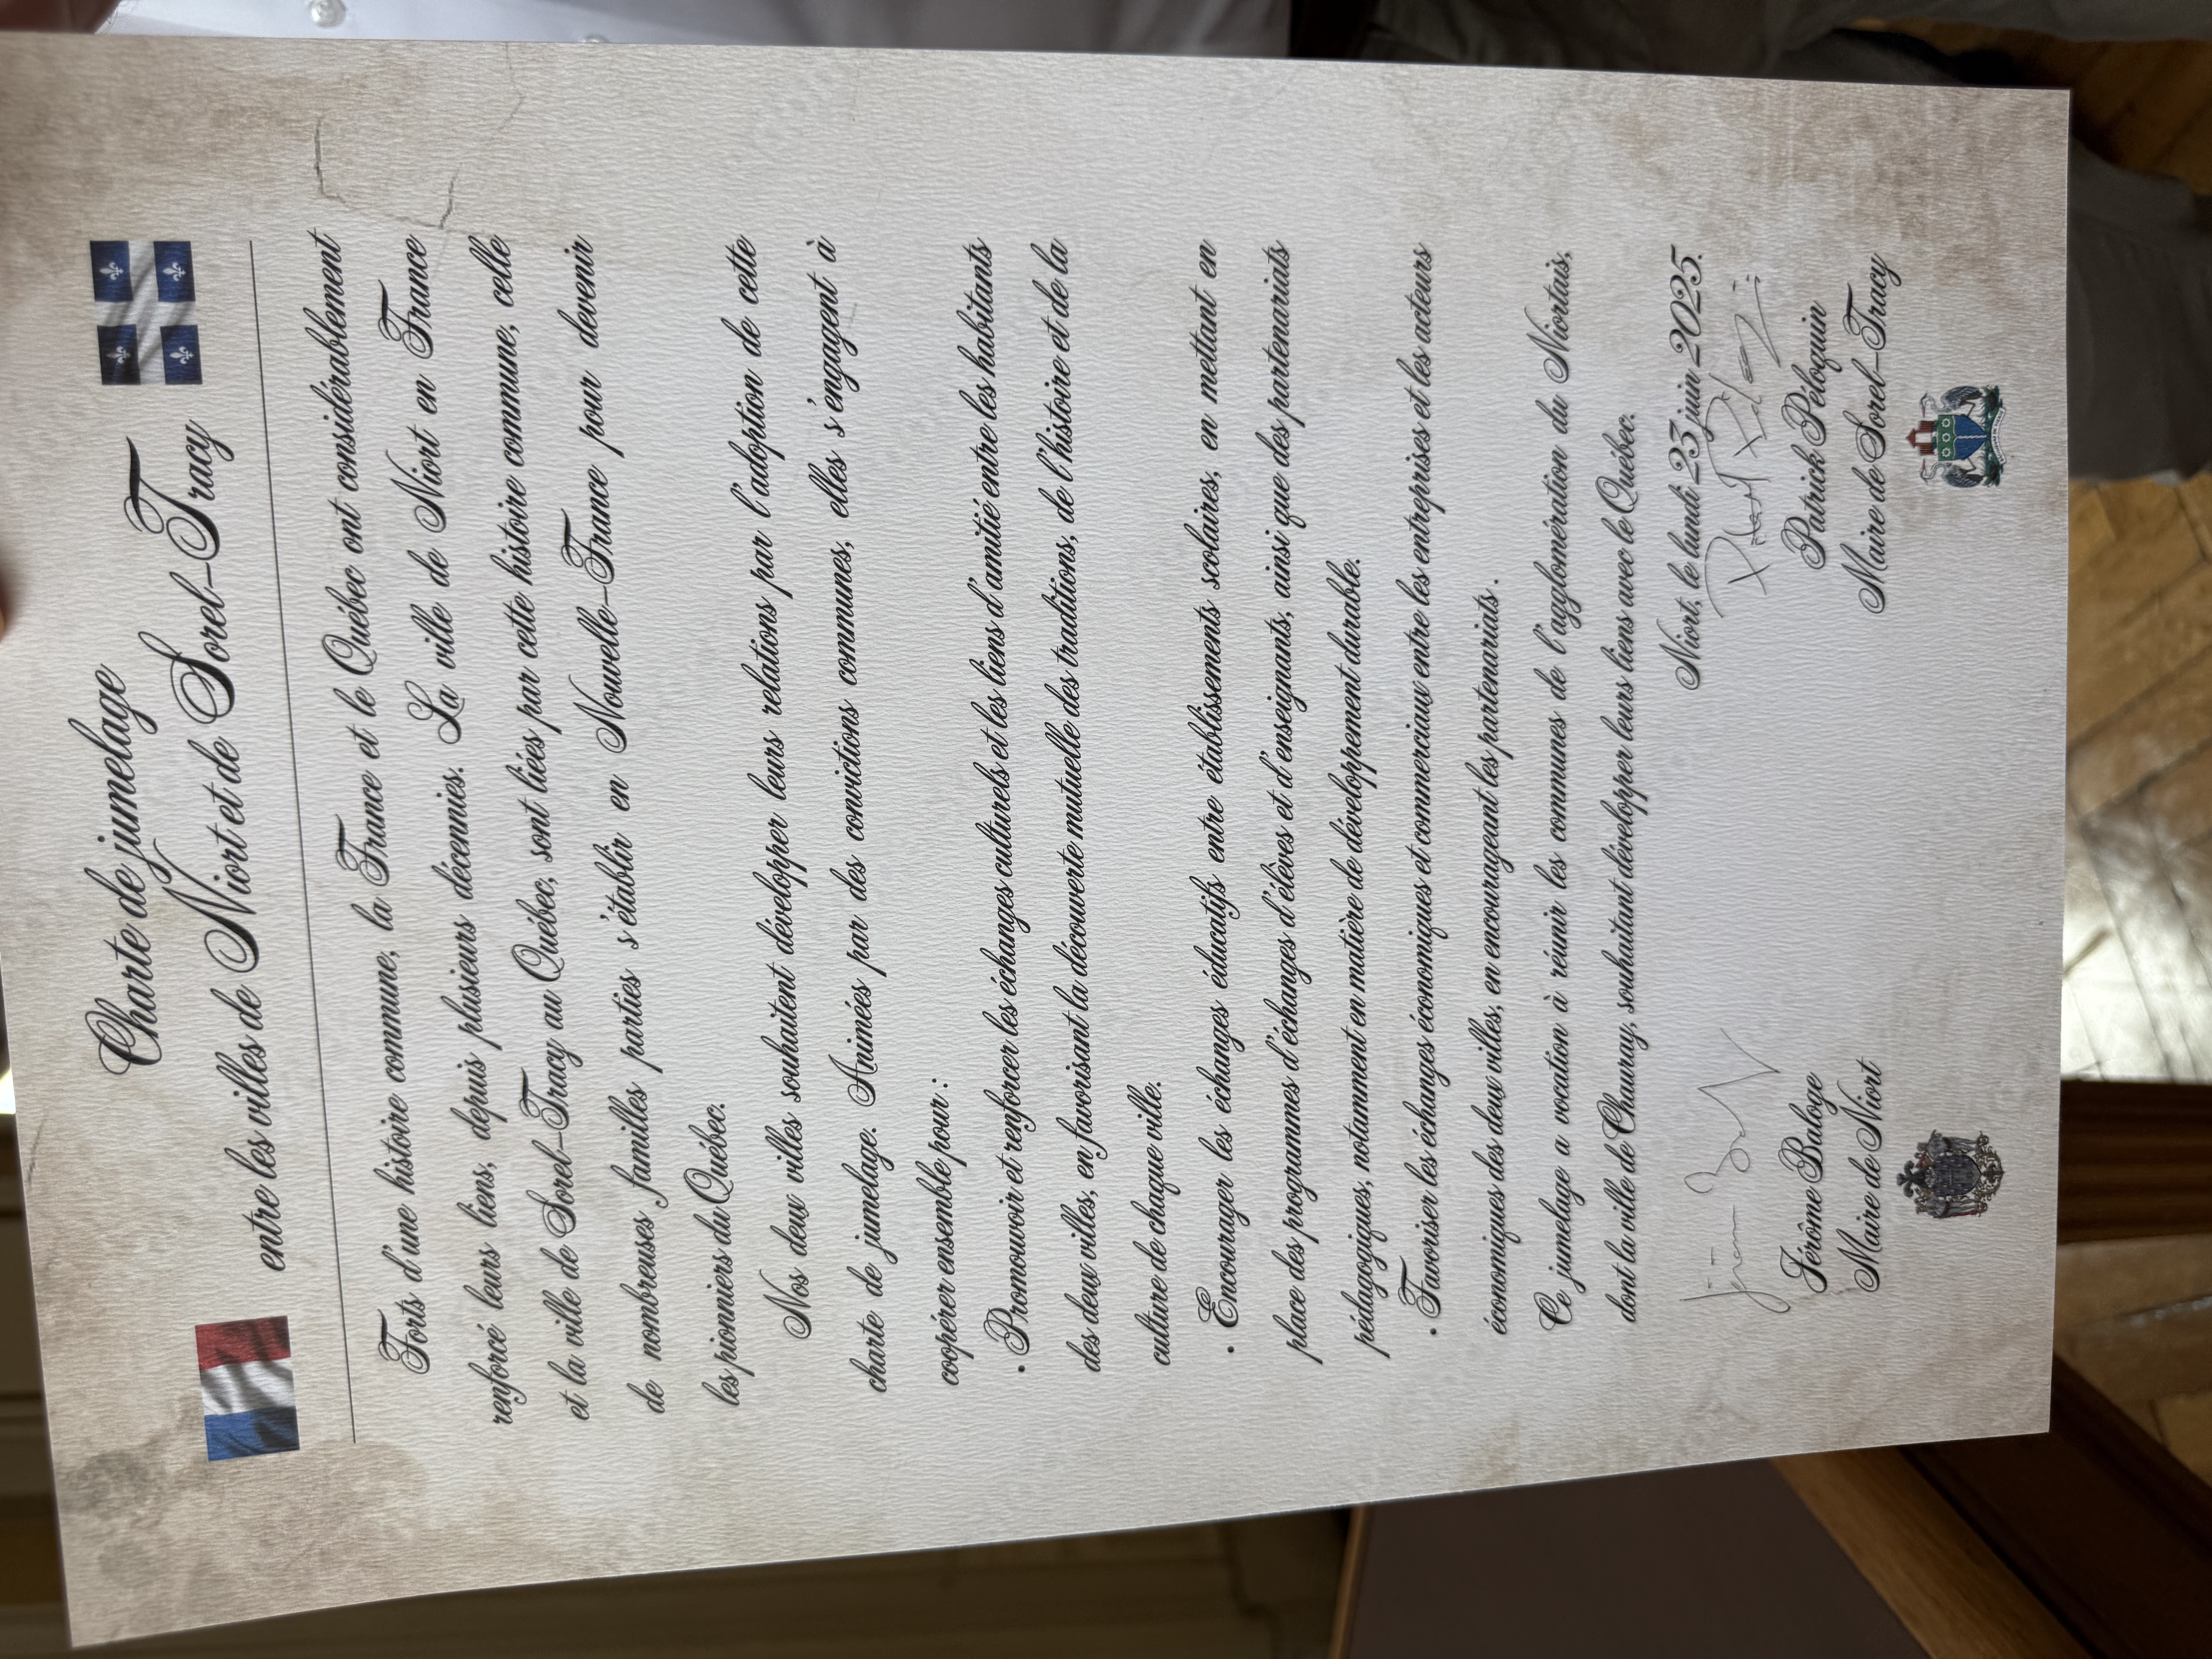 Charte de jumelage
entre les villes de Niort et de Sorel-Tracy
Forts d'une histoire commune, la France et le Québec ont considérablement
renforcé leurs liens, depuis plusieurs décennies. La ville de Niort en France
et la ville de Sorel-Tracy au Québec, sont liées par cette histoire commune, celle
de nombreuses familles parties s'établir en Nouvelle-France pour devenir
les pionniers du Québec.
Nos deux villes souhaitent développer leurs relations par l'adoption de cette
charte de jumelage. Animées par des convictions communes, elles s'engagent à
coopérer ensemble pour :
• Promouvoir et renforcer les échanges culturels et les liens d'amitié entre les habitants
des deux villes, en favorisant la découverte mutuelle des traditions, de l'histoire et de la
culture de chaque ville.
• Encourager les échanges éducatifs entre établissements scolaires, en mettant en
place des programmes d'échanges d'élèves et d'enseignants, ainsi que des partenariats
pédagogiques, notamment en matière de développement durable.
• Favoriser les échanges économiques et commerciaux entre les entreprises et les acteurs
économiques des deux villes, en encourageant les partenariats .
Ce jumelage a vocation à réunir les communes de l'agglomération du Niortais,
dont la ville de Chauray, souhaitant développer leurs liens avec le Québec.
Niort, le lundi 23 juin 2025.
Jérôme Baloge
Maire de Niort
Patrick Péloquin
Maire de Sorel-Tracy